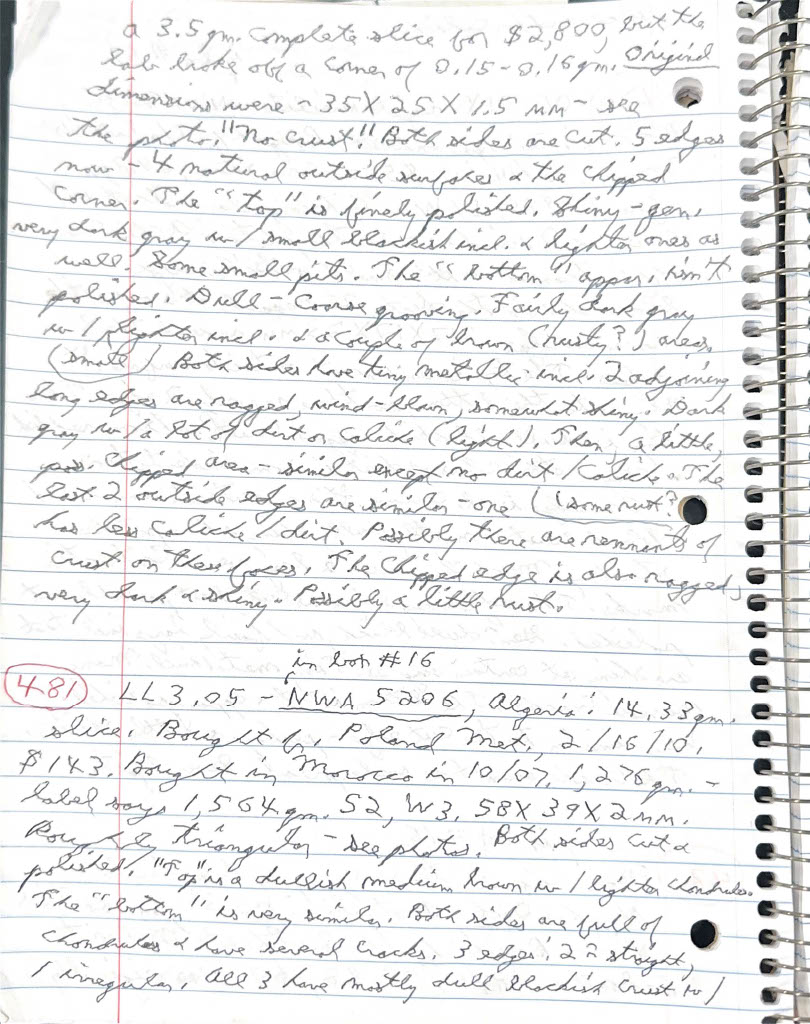 a 3.5 gm. complete slice for $2,800, but the
lab broke off a corner of 0.15-0.16 gm. Original
dimensions were ~ 35 X 25 X 1.5 mm - see
the photo. "No crust." Both sides are cut. 5 edges
now - 4 natural outside surfaces & the chipped
corner. The "top" is finely polished. Shiny - gen.
very dark gray w/ small blackish incl. & lighter ones as
well. Some small pits. The "bottom" appar. isn't
polished. Dull - coarse grooving. Fairly dark gray
w/ lighter incl. & a couple of brown (rusty?) areas.
(small) Both sides have tiny metallic incl. 2 adjoining
long edges are ragged, wind-blown, somewhat shiny. Dark
gray w/ a lot of dirt or caliche (light). Then, a little,
poss. chipped area - similar except no dirt/caliche. The
last 2 outside edges are similar - one (some rust?
has less caliche/dirt. Possibly there are remnants of
crust on these faces. The chipped edge is also ragged,
very dark & shiny. Possibly a little rust.
in box #16
481 LL3.05 - NWA 5206, Algeria: 14.33 gm.
slice. Bought fr. Poland Met., 2/16/10,
$143. Bought in Morocco in 10/07. 1,276 gm. -
label says 1,564 gm. S2, W3. 58 X 39 X 2 mm.
Roughly triangular - see photos. Both sides cut &
polished. "Top" is a dullish medium brown w/ lighter chondrules.
The "bottom" is very similar. Both sides are full of
chondrules & have several cracks. 3 edges: 2 ~ straight,
1 irregular. All 3 have mostly dull blackish crust w/